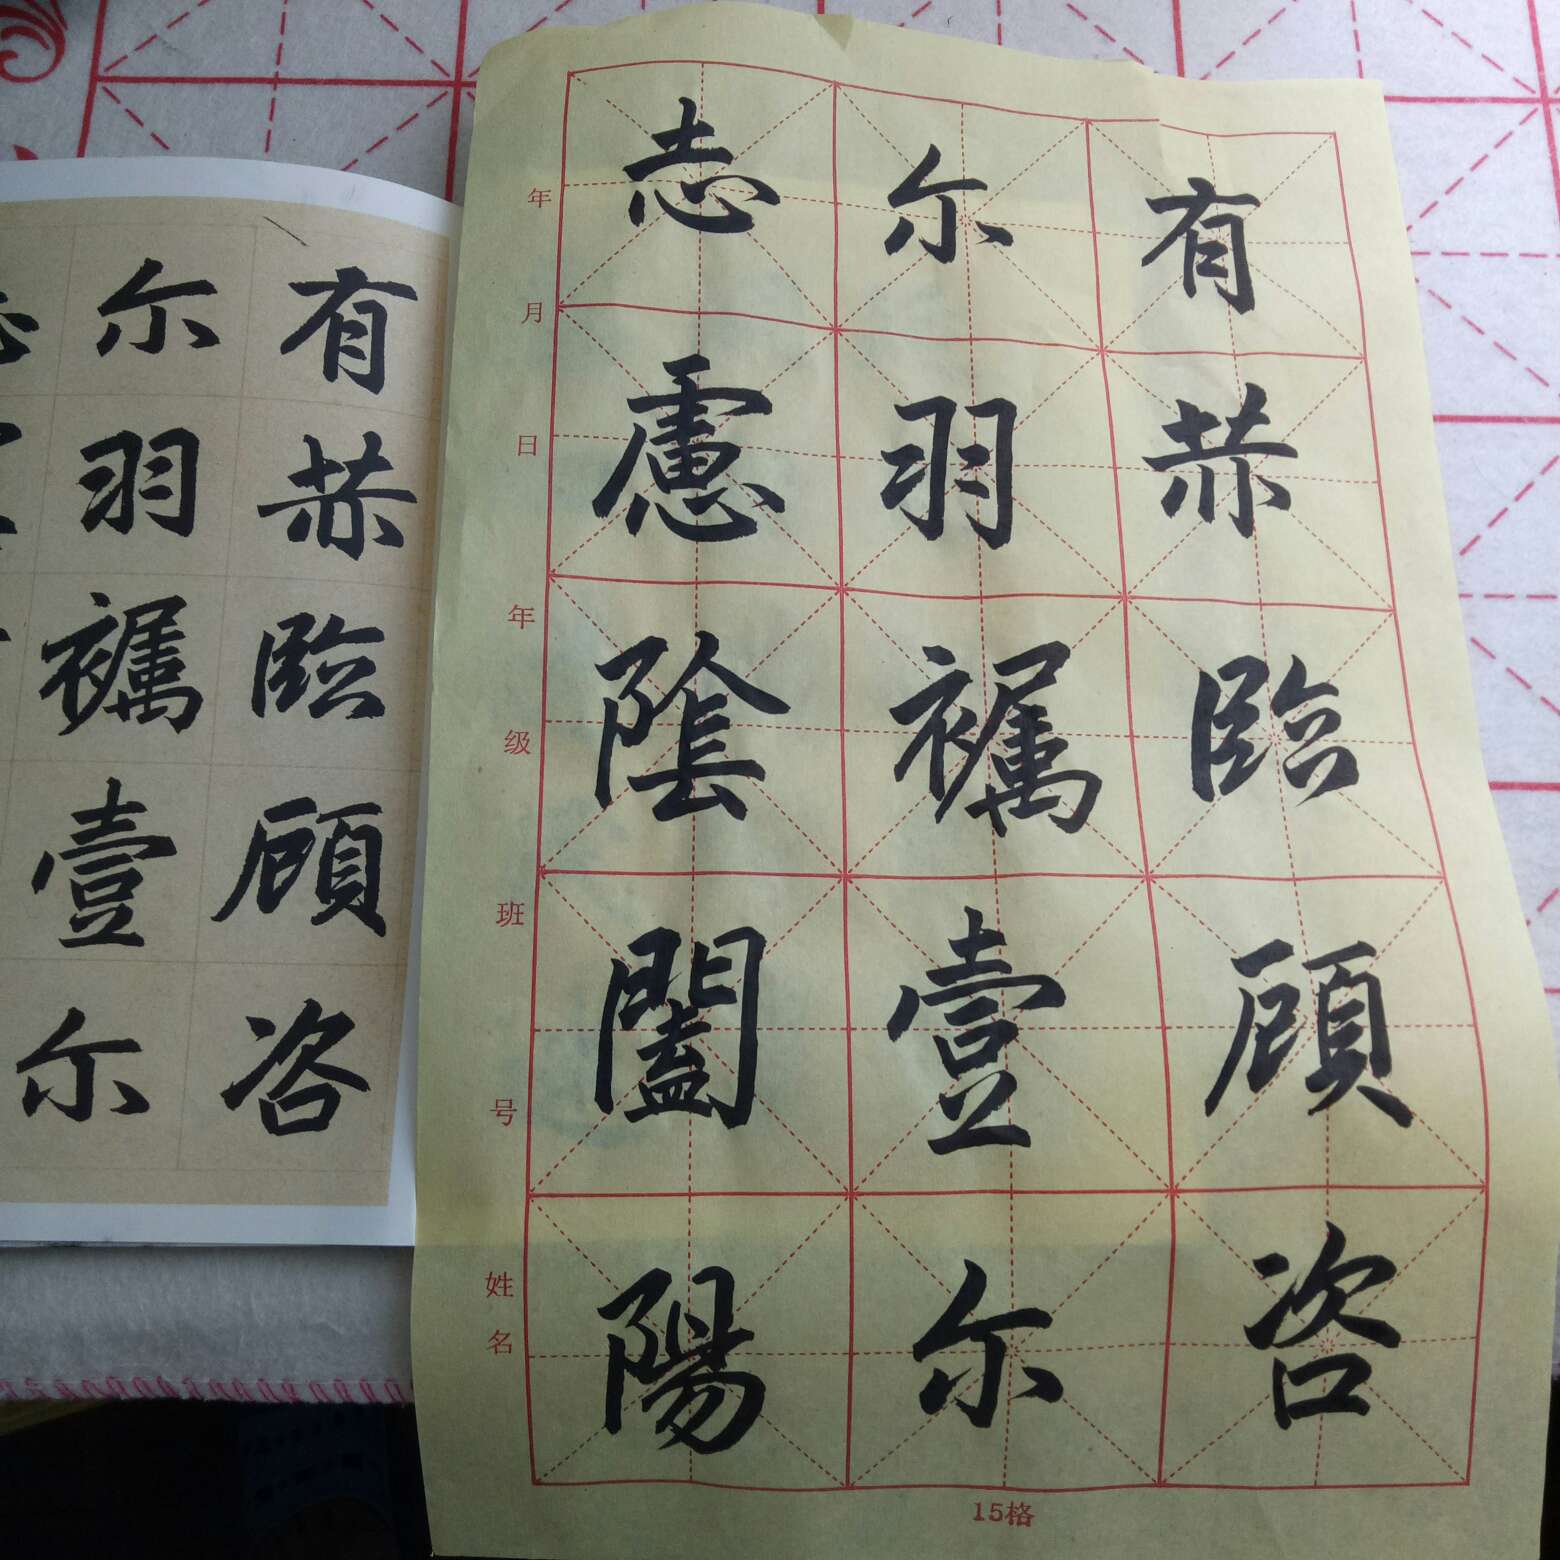 有赫臨顧咨
尔羽襹壹尔
志慮陰闔陽
年 月 日 年 级 班 号 姓名
15格
有赫臨顧咨
尔羽襹壹尔